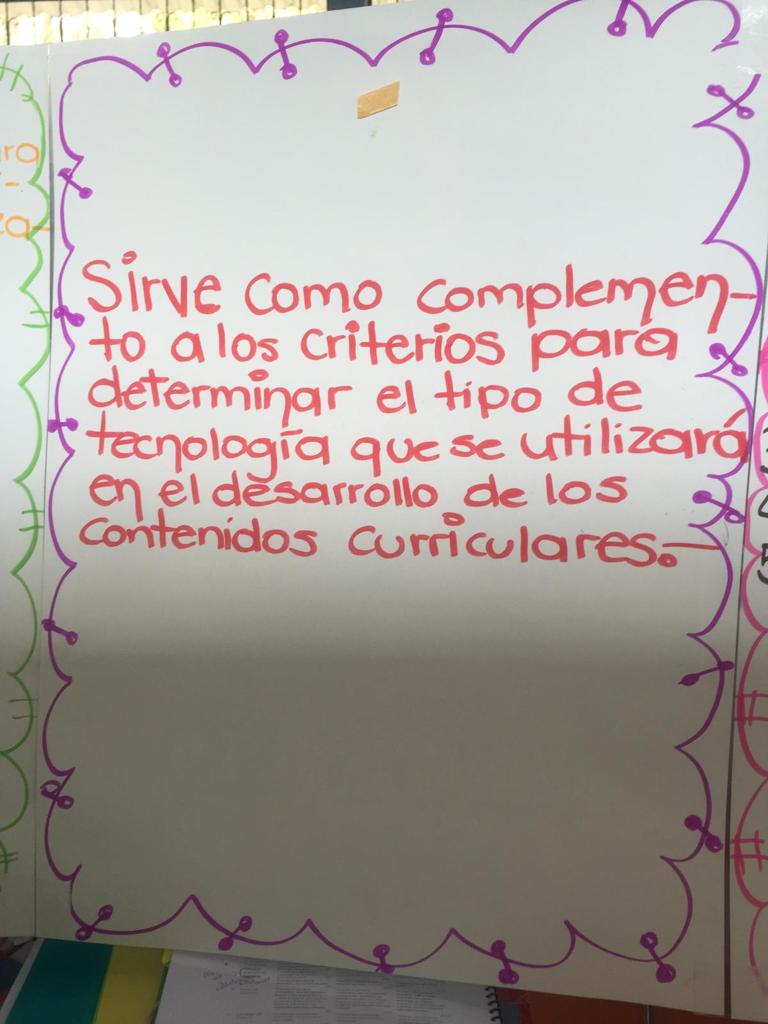 Sirve como complemen-
to a los criterios para
determinar el tipo de
tecnología que se utilizará
en el desarrollo de los
contenidos curriculares.-